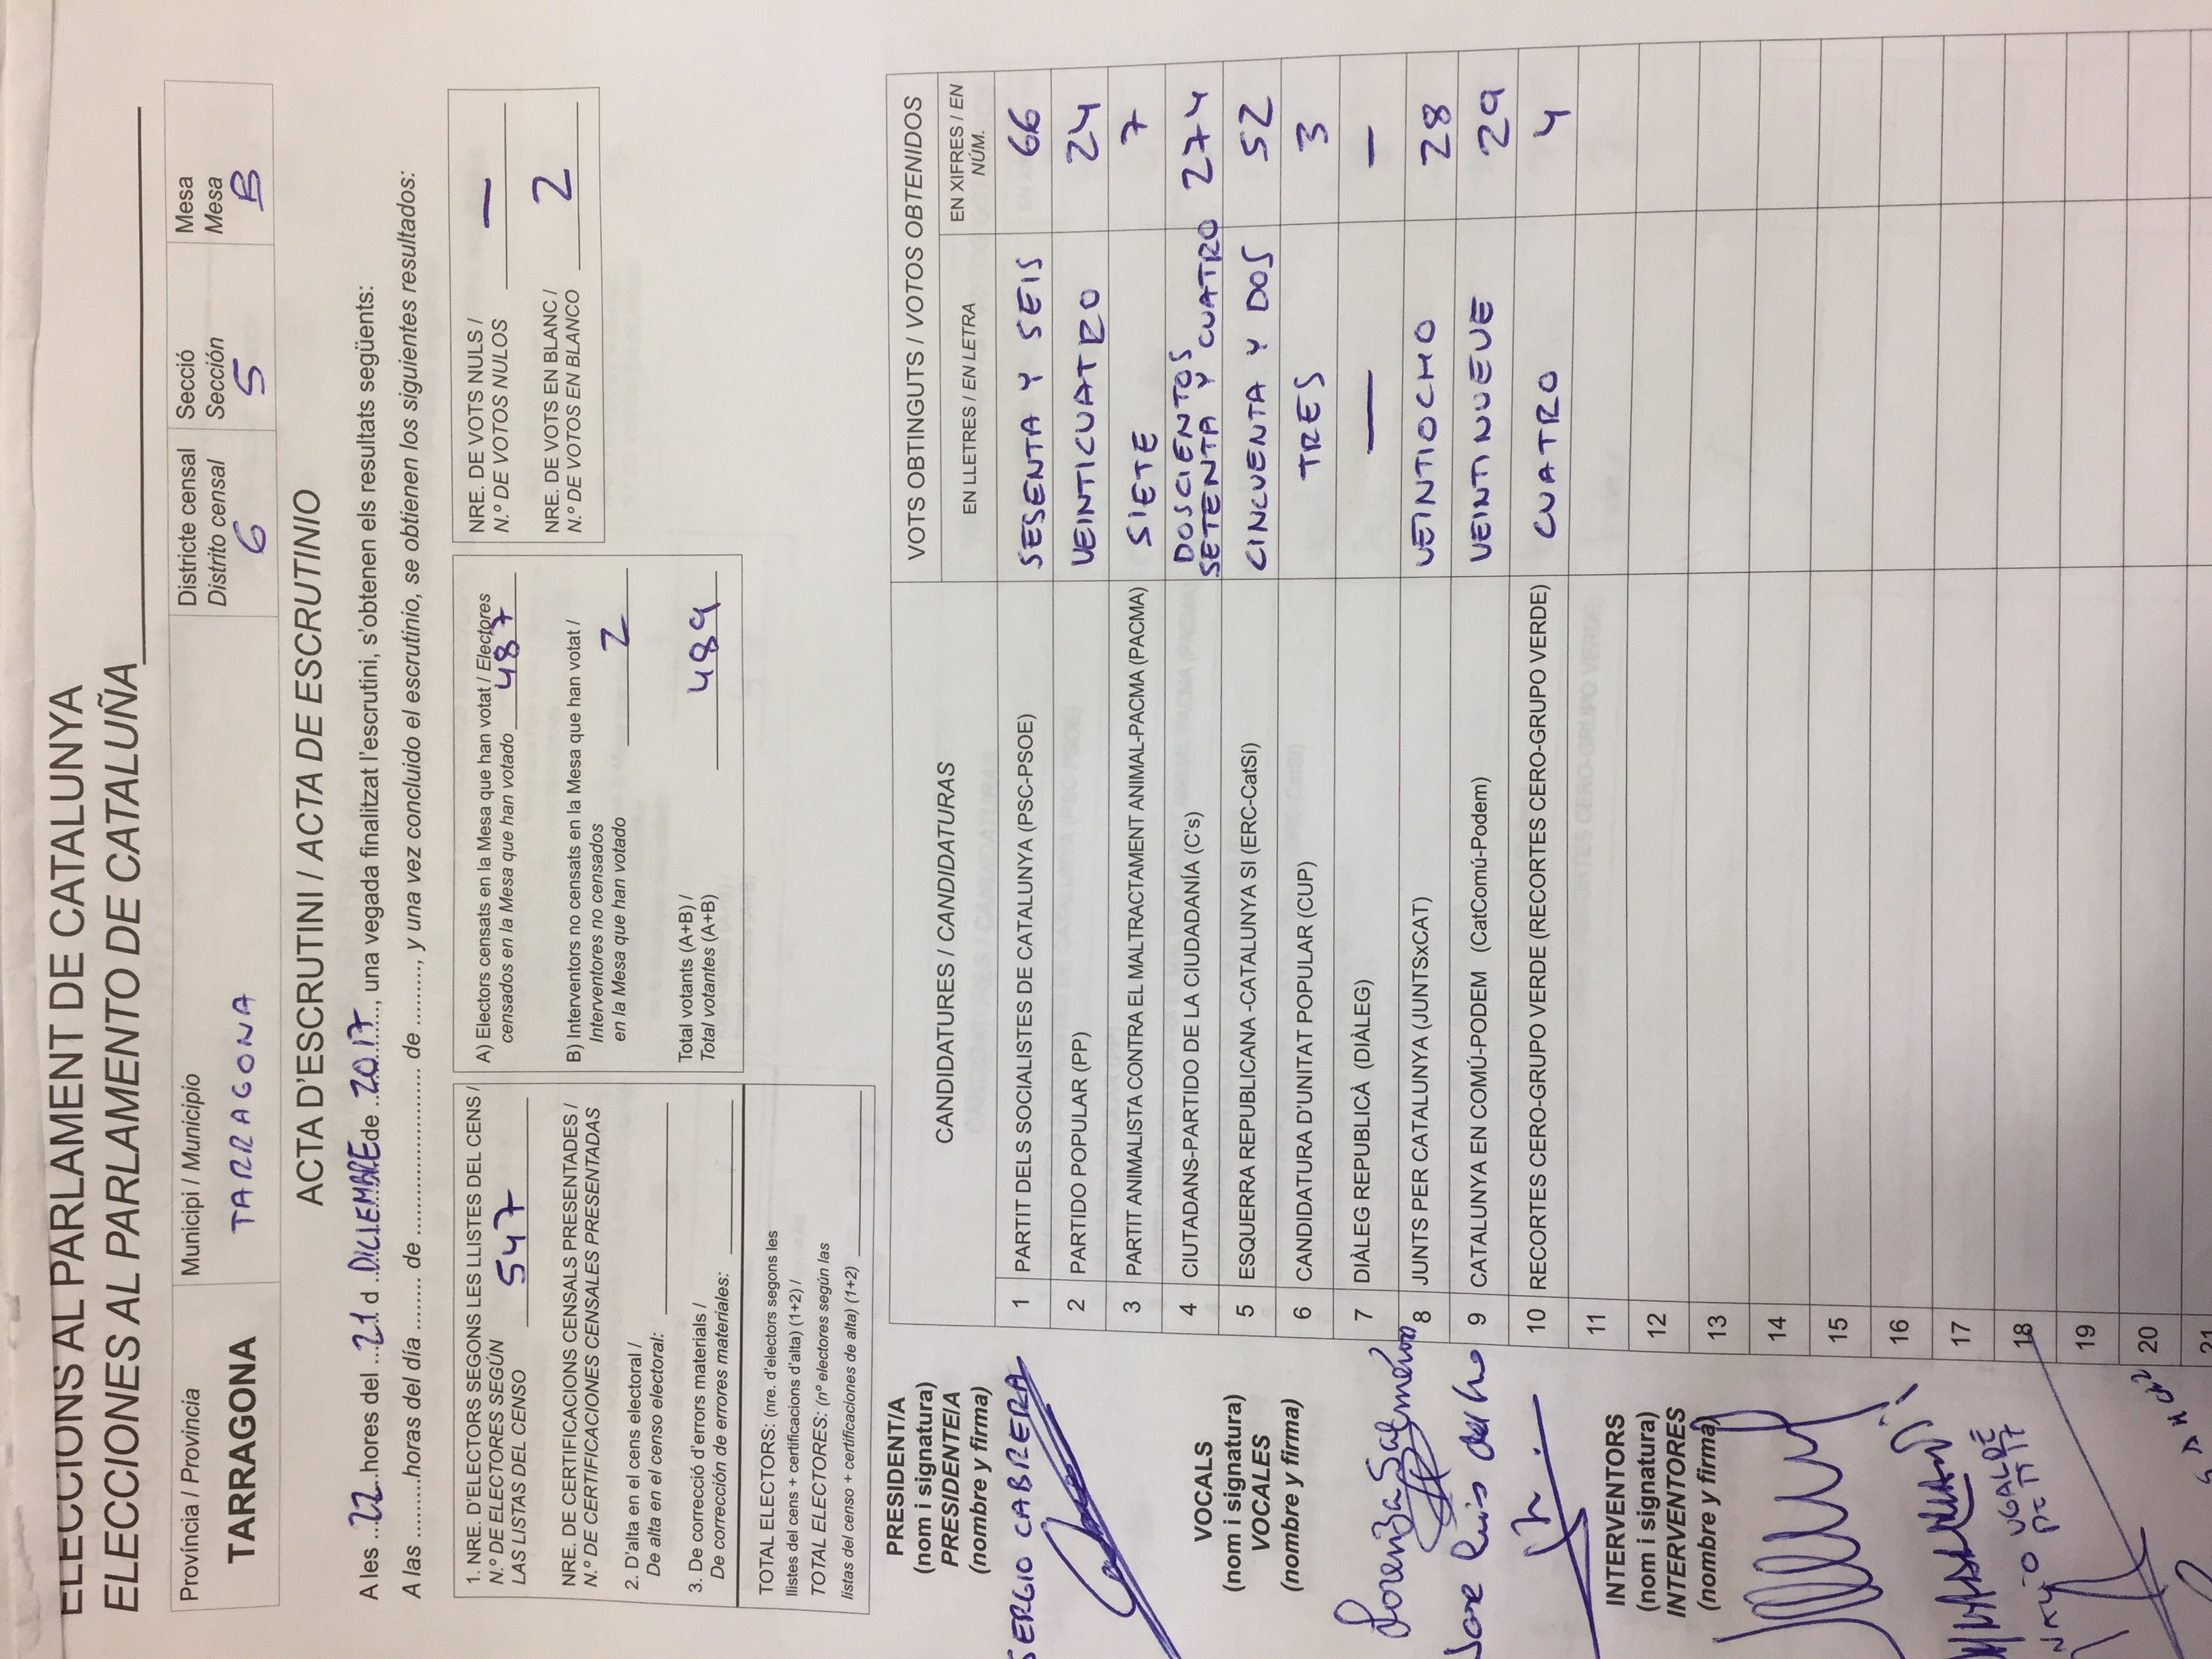 ELECCIONS AL PARLAMENT DE CATALUNYA
ELECCIONES AL PARLAMENTO DE CATALUÑA
Província / Provincia
TARRAGONA
Municipi / Municipio
TARRAGONA
Districte censal
Distrito censal
6
Secció
Sección
5
Mesa
Mesa
B
ACTA D'ESCRUTINI / ACTA DE ESCRUTINIO
A les ..22..hores del ...21 d ..DICIEMBRE de ..2017.., una vegada finalitzat l'escrutini, s'obtenen els resultats següents:
A las .........horas del día ........ de ......................... de ........., y una vez concluido el escrutinio, se obtienen los siguientes resultados:
1. NRE. D'ELECTORS SEGONS LES LLISTES DEL CENS /
N.º DE ELECTORES SEGÚN
LAS LISTAS DEL CENSO 547
NRE. DE CERTIFICACIONS CENSALS PRESENTADES /
N.º DE CERTIFICACIONES CENSALES PRESENTADAS
2. D'alta en el cens electoral /
De alta en el censo electoral:
3. De correcció d'errors materials /
De corrección de errores materiales:
TOTAL ELECTORS: (nre. d'electors segons les
llistes del cens + certificacions d'alta) (1+2) /
TOTAL ELECTORES: (nº electores según las
listas del censo + certificaciones de alta) (1+2)
A) Electors censats en la Mesa que han votat / Electores
censados en la Mesa que han votado 487
B) Interventors no censats en la Mesa que han votat /
Interventores no censados
en la Mesa que han votado 2
Total votants (A+B) /
Total votantes (A+B) 489
NRE. DE VOTS NULS /
N.º DE VOTOS NULOS —
NRE. DE VOTS EN BLANC /
N.º DE VOTOS EN BLANCO 2
PRESIDENT/A
(nom i signatura)
PRESIDENTE/A
(nombre y firma)
SERGIO CABRERA
VOCALS
(nom i signatura)
VOCALES
(nombre y firma)
Lorenza Salmerón
Jose Luis del
INTERVENTORS
(nom i signatura)
INTERVENTORES
(nombre y firma)
UGALDE
PETIT
CANDIDATURES / CANDIDATURAS
VOTS OBTINGUTS / VOTOS OBTENIDOS
EN LLETRES / EN LETRA
EN XIFRES / EN
NÚM.
1 PARTIT DELS SOCIALISTES DE CATALUNYA (PSC-PSOE) SESENTA Y SEIS 66
2 PARTIDO POPULAR (PP) VEINTICUATRO 24
3 PARTIT ANIMALISTA CONTRA EL MALTRACTAMENT ANIMAL-PACMA (PACMA) SIETE 7
4 CIUTADANS-PARTIDO DE LA CIUDADANÍA (C's) DOSCIENTOS
SETENTA Y CUATRO 274
5 ESQUERRA REPUBLICANA -CATALUNYA SI (ERC-CatSí) CINCUENTA Y DOS 52
6 CANDIDATURA D'UNITAT POPULAR (CUP) TRES 3
7 DIÀLEG REPUBLICÀ (DIÀLEG) — —
8 JUNTS PER CATALUNYA (JUNTSxCAT) VEINTIOCHO 28
9 CATALUNYA EN COMÚ-PODEM (CatComú-Podem) VEINTINUEVE 29
10 RECORTES CERO-GRUPO VERDE (RECORTES CERO-GRUPO VERDE) CUATRO 4
11
12
13
14
15
16
17
18
19
20
21